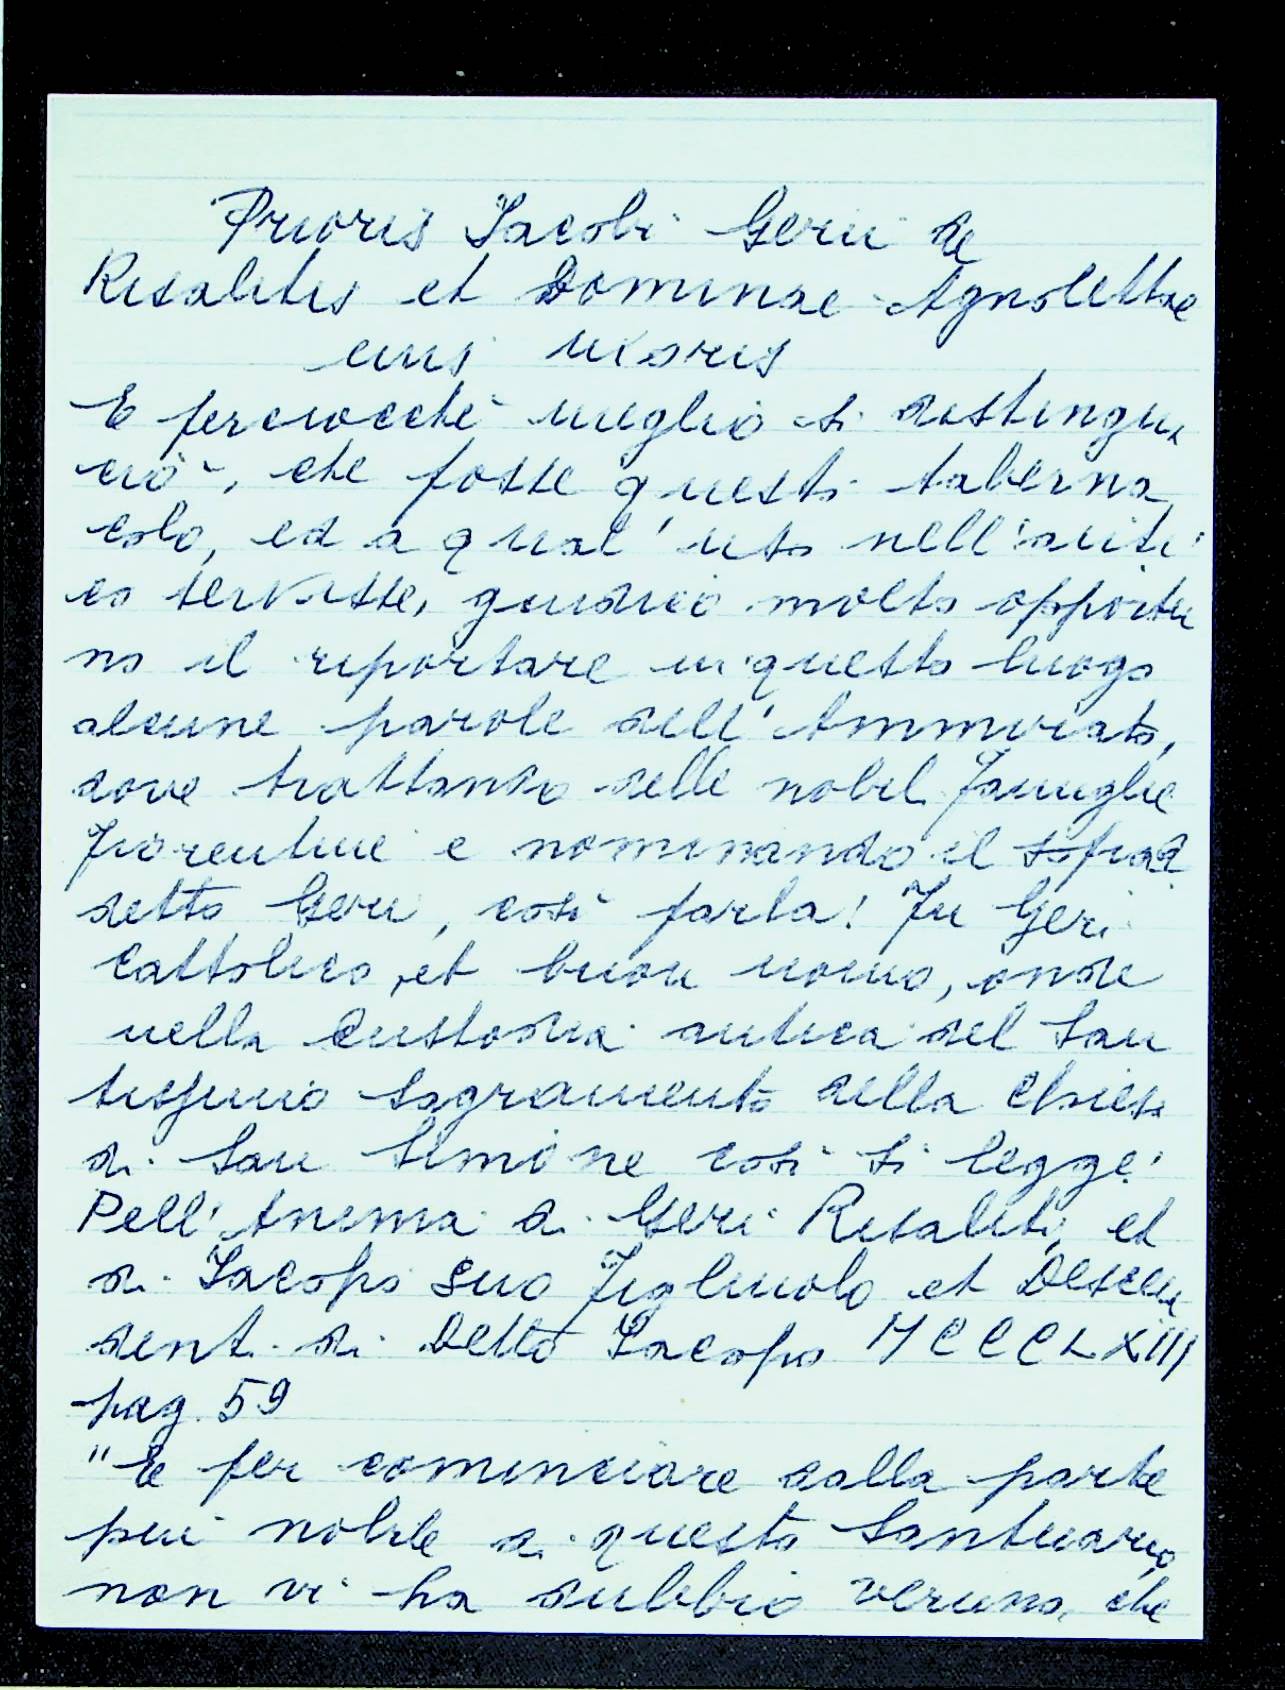 Prioris Jacobi Gerii de
Risalitis et Dominae Agnolettae
eius uxoris
E perciocché meglio si distingua
ciò, che fosse questo taberna
colo, ed a qual' uso nell'anti
co servisse, giudico molto opportu
no il riportare in questo luogo
alcune parole dell'Ammirato,
dove trattando delle nobil famiglie
fiorentine e nominando il
detto Geri, così parla: Fu Geri
Cattolico, et buon uomo, onde
nella Custodia antica del San
tissimo Sagramento della Chiesa
di San Simone così si legge:
Pell'Anima di Geri Risaliti, et
di Jacopo suo Figliuolo et Descen
denti di Detto Jacopo MCCCLXIII
pag. 59
"E per cominciare dalla parte
più nobile di questo Santuario,
non vi ha dubbio veruno, che